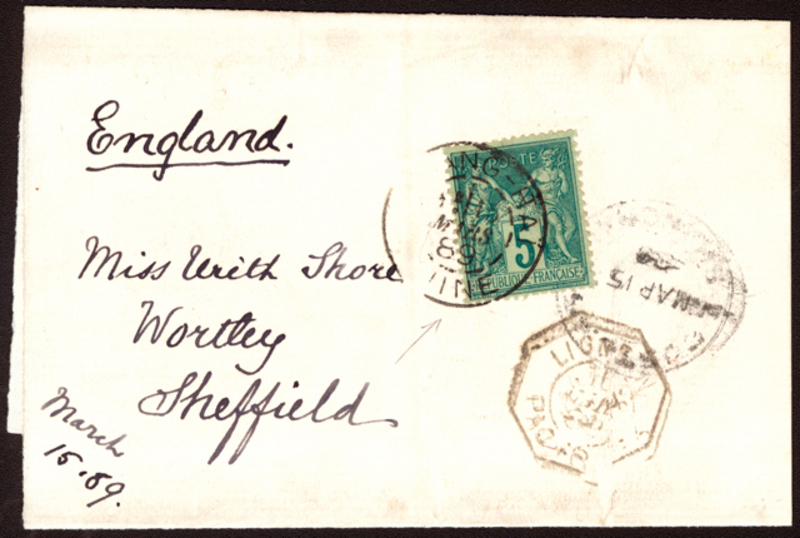 England.
Miss Urith Shore
Wortley
Sheffield
March
15.89.
POSTE
5
REPUBLIQUE FRANÇAISE
ANG-HAI
CHINE
89
MAR 15
LIGNE
PAQ